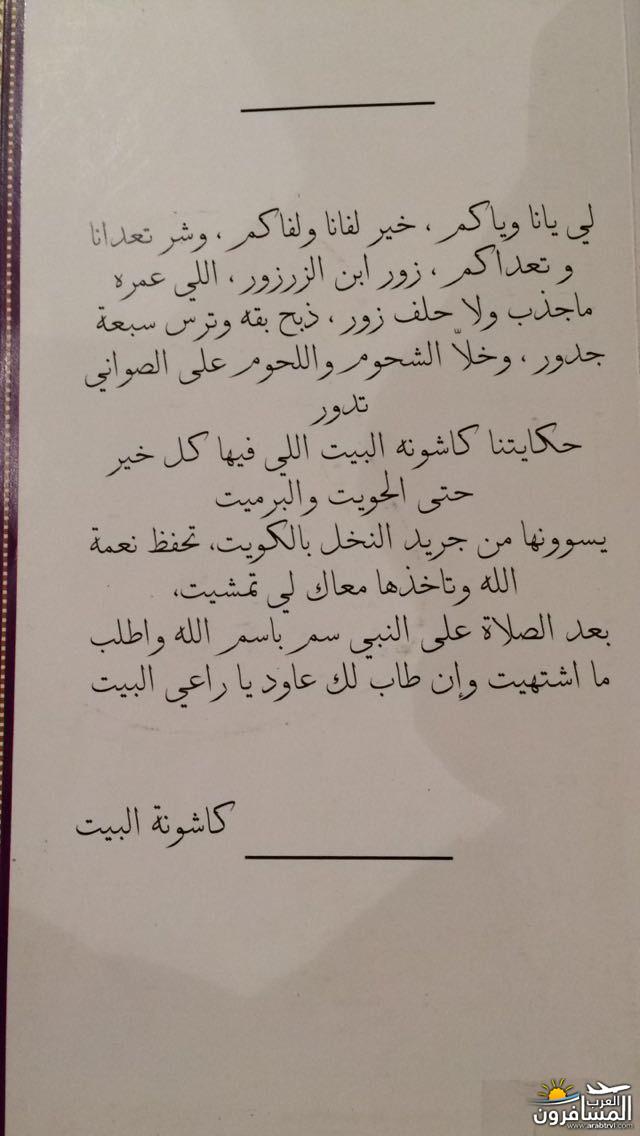 لي يانا وياكم ، خير لفانا ولفاكم ، وشر تعدانا
و تعداكم ، زور ابن الزرزور ، اللي عمره
ماجذب ولا حلف زور ، ذبح بقه وترس سبعة
جدور ، وخلاّ الشحوم واللحوم على الصواني
تدور
حكايتنا كاشونه البيت اللي فيها كل خير
حتى الحويت والبرميت
يسوونها من جريد النخل بالكويت، تحفظ نعمة
الله وتاخذها معاك لي تمشيت،
بعد الصلاة على النبي سم باسم الله واطلب
ما اشتهيت وإن طاب لك عاود يا راعي البيت
كاشونة البيت
العرب
المسافرون
www.arabtrvl.com